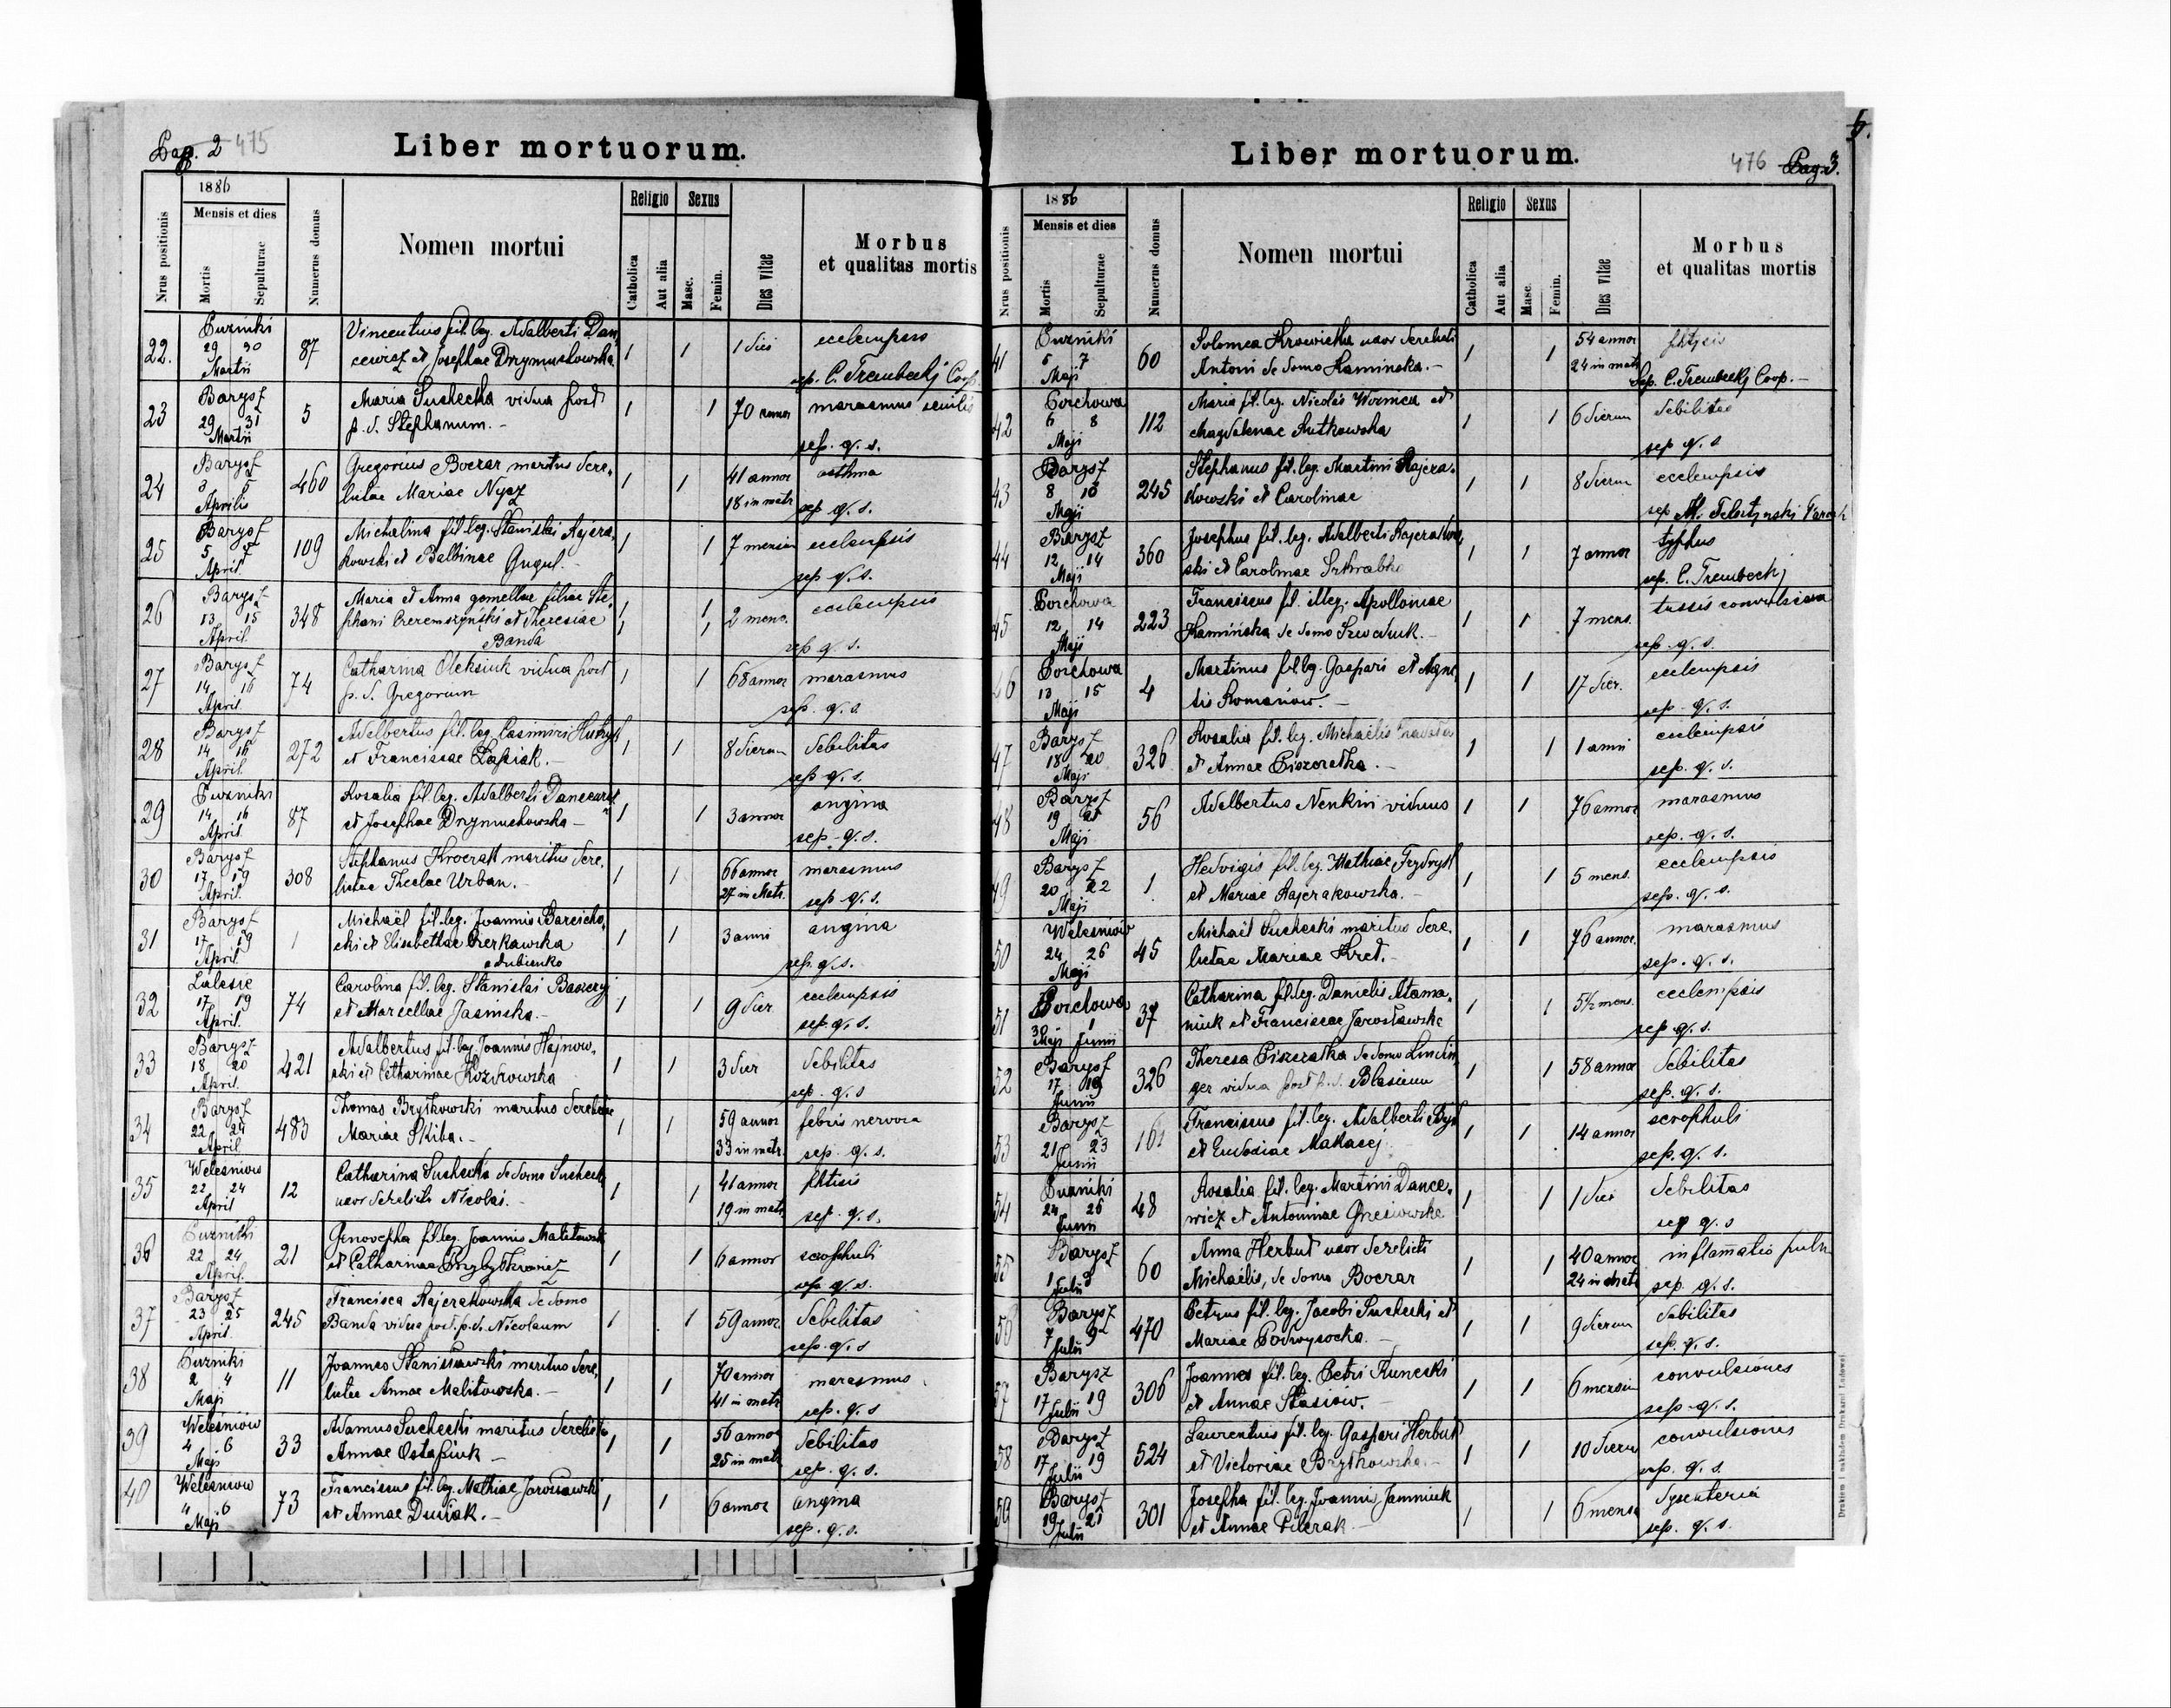 Pag. 2 475
Liber mortuorum.
Nrus positionis
1886
Mensis et dies
Mortis
Sepulturae
Numerus domus
Nomen mortui
Religio
Catholica
Aut alia
Sexus
Masc.
Femin.
Dies vitae
Morbus
et qualitas mortis
22. Puzniki 29 30 Martii 87
Vincentius fil. leg. Adalberti Dan
cewicz et Josephae Drzymuchowska
1 1 1 diei ecclempsis
sep. C. Trembecki Coop.
23 Barysz 29 31 Martii 5
Maria Suchecka vidua post
p. d. Stephanum. -
1 1 70 annor marasmus senilis
sep. q. s.
24 Barysz 3 5 Aprilis 460
Gregorius Boczar maritus dere-
lictae Mariae Nycz
1 1 41 annor asthma
18 in matr sep q. s.
25 Barysz 5 7 April. 109
Michalina fil. leg. Stanislai Rajera-
kowski et Balbinae Gugul. -
1 1 7 mensium ecclempsis
sep q. s.
26 Barysz 13 15 April. 348
Maria et Anna gemellae filiae Ste-
phani Czeremszyński et Theresiae
Banda
1 1 2 mens. ecclempsis
1 1 sep q. s.
27 Barysz 14 16 April. 74
Catharina Oleksiuk vidua post
p. d. Gregorium
1 1 68 annor marasmus
sep. q. s.
28 Barysz 14 16 April. 272
Adelbertus fil. leg. Casimiri
et Franciscae Łasiak. -
1 1 8 dierum debilitas
sep q. s.
29 Puzniki 14 16 April. 87
Rosalia fil. leg. Adalberti Dancewicz
et Josephae Drzymuchowska -
1 1 3 annor angina
sep. q. s.
30 Barysz 17 19 April. 308
Stephanus Kroczak maritus dere-
lictae Theclae Urban. -
1 1 66 annor marasmus
27 in Matr. sep q. s.
31 Barysz 17 19 April 1
Michaël fil. leg. Joannis Barcicho-
ski et Elisabethae Czerkawska
1 1 3 anni angina
sep. q. s.
32 Zalesie 17 19 April. 74
Carolina fil. leg. Stanislai Baszczy
et Marcellae Jasinska. -
1 1 9 dier ecclempsis
sep q. s.
33 Barysz 18 20 April. 421
Adalbertus fil. leg. Joannis Hajnow-
ski et Catharinae Kozdrowska
1 1 3 dier debilitas
sep. q. s
34 Barysz 22 24 April. 483
Thomas Brytkowski maritus derelictae
Mariae Skiba. -
1 1 59 annor febris nervosa
33 in matr. sep. q. s.
35 Weleśniow 22 24 April 12
Catharina Suchecka de domo Suchecka
uxor derelicti Nicolai. -
1 1 41 annor phtisis
19 in matr. sep. q. s.
36 Puzniki 22 24 April. 21
Genovepha fil. leg. Joannis Malitowski
et Catharinae Przybytkiewicz
1 1 6 annor scrophuli
sep. q. s.
37 Barysz 23 25 April. 245
Francisca Rajerakowska de domo
Banda vidua post. p. d. Nicolaum
1 1 59 annor. debilitas
sep. q. s
38 Puzniki 2 4 Maji 11
Joannes Stanisławski maritus dere-
lictae Annae Malitowska. -
1 1 70 annor marasmus
41 in matr. sep. q. s
39 Weleśniów 4 6 Maji 33
Adamus Suchecki maritus derelictae
Annae Ostafiuk -
1 1 56 annor debilitas
25 in matr sep. q. s.
40 Weleśniow 4 6 Maji 73
Franciscus fil. leg. Mathiae Jarosławski
et Annae Dusiak. -
1 1 6 annor angina
sep. q. s.
6.
Liber mortuorum.
476 Pag. 3.
Nrus positionis
1886
Mensis et dies
Mortis
Sepulturae
Numerus domus
Nomen mortui
Religio
Catholica
Aut alia
Sexus
Masc.
Femin.
Dies vitae
Morbus
et qualitas mortis
41 Puzniki 5 7 Maji 60
Solomea Krowicka uxor derelicti
Antoni de domo Kaminska. -
1 1 54 annor phtysis
24 in matr Sep. C. Trembecki Coop. -
42 Porchowa 6 8 Maji 112
Maria fil. leg. Nicolai Worncea et
Magdalenae Rutkowska
1 1 6 dierum debilitas
sep q. s
43 Barysz 8 10 Maji 245
Stephanus fil. leg. Martini Rajera-
kowski et Carolinae
1 1 8 dierum ecclempsis
sep M. Paroch
44 Barysz 12 14 Maji 360
Josephus fil. leg. Adalberti Rajerakow-
ski et Carolinae
1 1 7 annor typhus
sep. C. Trembecki
45 Porchowa 12 14 Maji 223
Franciscus fil. illeg. Apolloniae
Kamińska de domo Szwediuk. -
1 1 7 mens. tussis convulsiva
sep. q. s.
46 Porchowa 13 15 Maji 4
Martinus fil. leg. Gaspari et Agne-
tis Romanów. -
1 1 17 dier. ecclempsis
sep. q. s.
47 Barysz 18 20 Maji 326
Rosalia fil. leg. Michaëlis
et Annae Piszczatka. -
1 1 1 anni ecclempsis
sep. q. s.
48 Barysz 19 21 Maji 56
Adelbertus Nenkin viduus
1 1 76 annor marasmus
sep. q. s.
49 Barysz 20 22 Maji 1.
Hedvigis fil. leg. Mathiae Frydrysz
et Mariae Rajerakowska. -
1 1 5 mens. ecclempsis
sep. q. s.
50 Weleśniów 24 26 Maji 45
Michaël Suchecki maritus dere-
lictae Mariae Kret. -
1 1 76 annor. marasmus
sep. q. s.
51 Porchowa 30 1 Maji Junii 37
Catharina fil. leg. Danielis Atama-
niuk et Franciscae Jarosławska
1 1 5½ mens. ecclempsis
sep q. s.
52 Barysz 17 19 Junii 326
Theresa Piszczatka de domo Lindin-
ger vidua post p. d. Blasium
1 1 58 annor debilitas
sep. q. s.
53 Barysz 21 23 Junii
Franciscus fil. leg. Adalberti
et Eudodiae Makacej.
1 1 14 annor scrophuli
sep. q. s.
54 Puzniki 24 26 Junii 48
Rosalia fil. leg. Martini Dance-
wicz et Antoninae Gresiowska
1 1 1 diei debilitas
sep q. s
55 Barysz 1 3 Julii 60
Anna Herbut uxor derelicti
Michaëlis, de domo Boczar
1 1 40 annor inflamatio pulm
24 in matr sep. q. s.
56 Barysz 7 9 Julii 470
Petrus fil. leg. Jacobi Suchecki et
Mariae Podwysocka. -
1 1 9 dierum debilitas
sep. q. s.
57 Barysz 17 19 Julii 306
Joannes fil. leg. Petri Kuneski
et Annae Stasiów. -
1 1 6 mensium convulsiones
sep q. s.
58 Barysz 17 19 Julii 524
Laurentius fil. leg. Gaspari Herbut
et Victoriae Brytkowska. -
1 1 10 dierum convulsiones
sep. q. s.
59 Barysz 19 21 Julii 301
Josepha fil. leg. Joannis Jamniuk
et Annae Pilczak -
1 1 6 mens dysenteria
sep. q. s.
Drukiem i nakładem Drukarni Ludowej